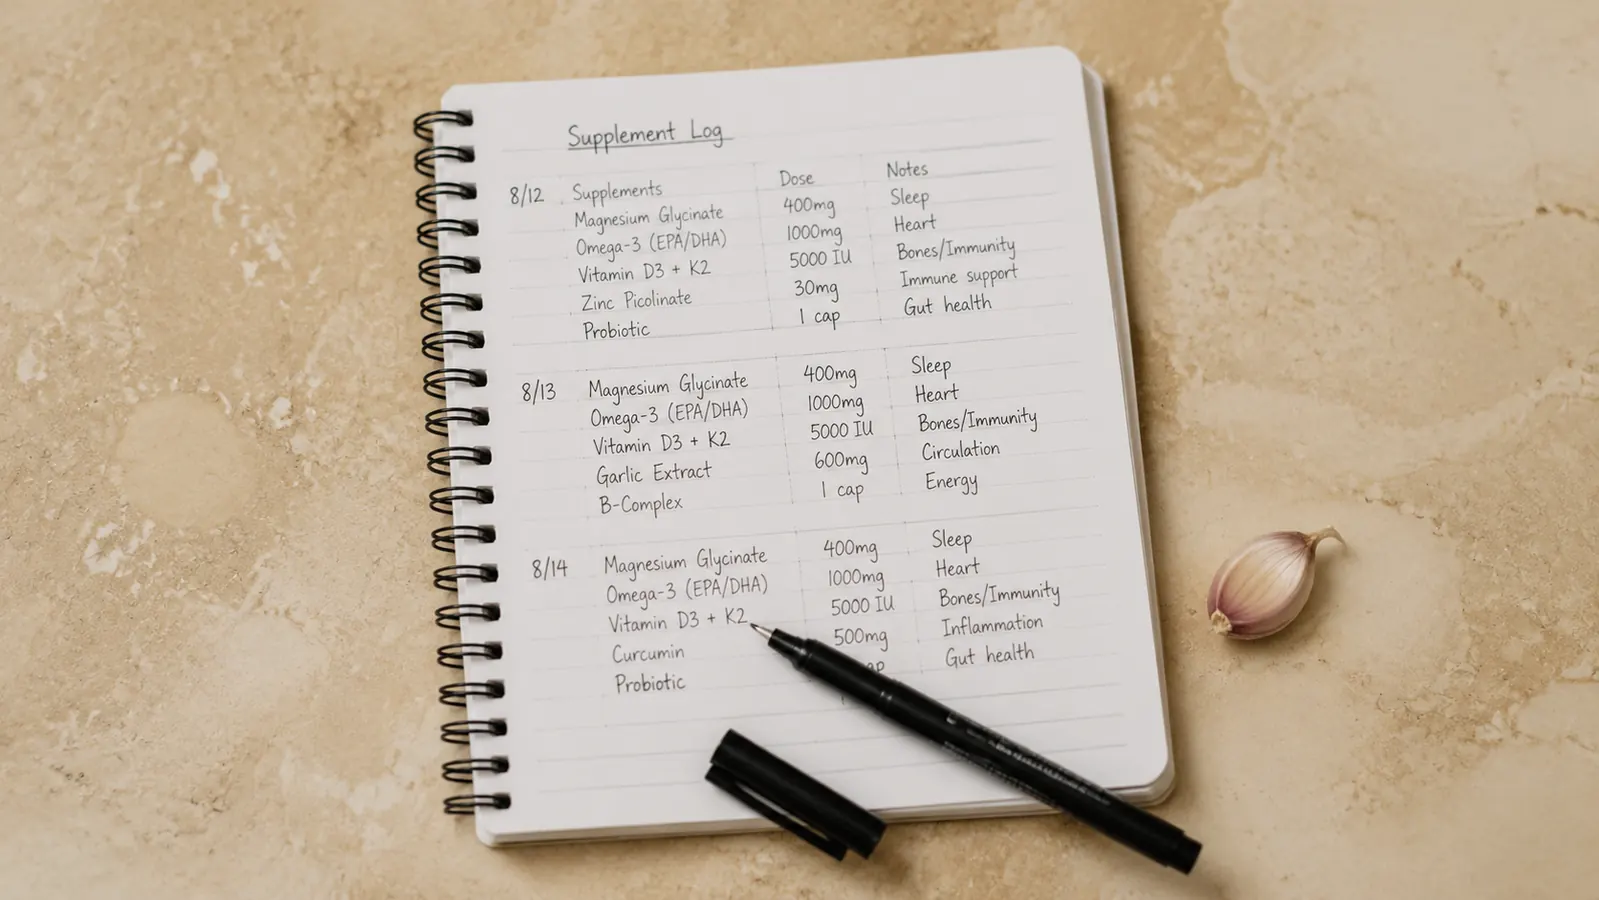 Supplement Log
8/12 Supplements Dose Notes
Magnesium Glycinate 400mg Sleep
Omega-3 (EPA/DHA) 1000mg Heart
Vitamin D3 + K2 5000 IU Bones/Immunity
Zinc Picolinate 30mg Immune support
Probiotic 1 cap Gut health
8/13 Magnesium Glycinate 400mg Sleep
Omega-3 (EPA/DHA) 1000mg Heart
Vitamin D3 + K2 5000 IU Bones/Immunity
Garlic Extract 600mg Circulation
B-Complex 1 cap Energy
8/14 Magnesium Glycinate 400mg Sleep
Omega-3 (EPA/DHA) 1000mg Heart
Vitamin D3 + K2 5000 IU Bones/Immunity
Curcumin 500mg Inflammation
Probiotic Gut health